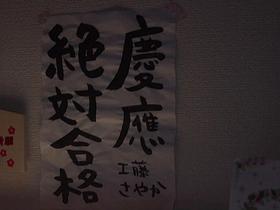 慶應
絶対合格
工藤
さやか